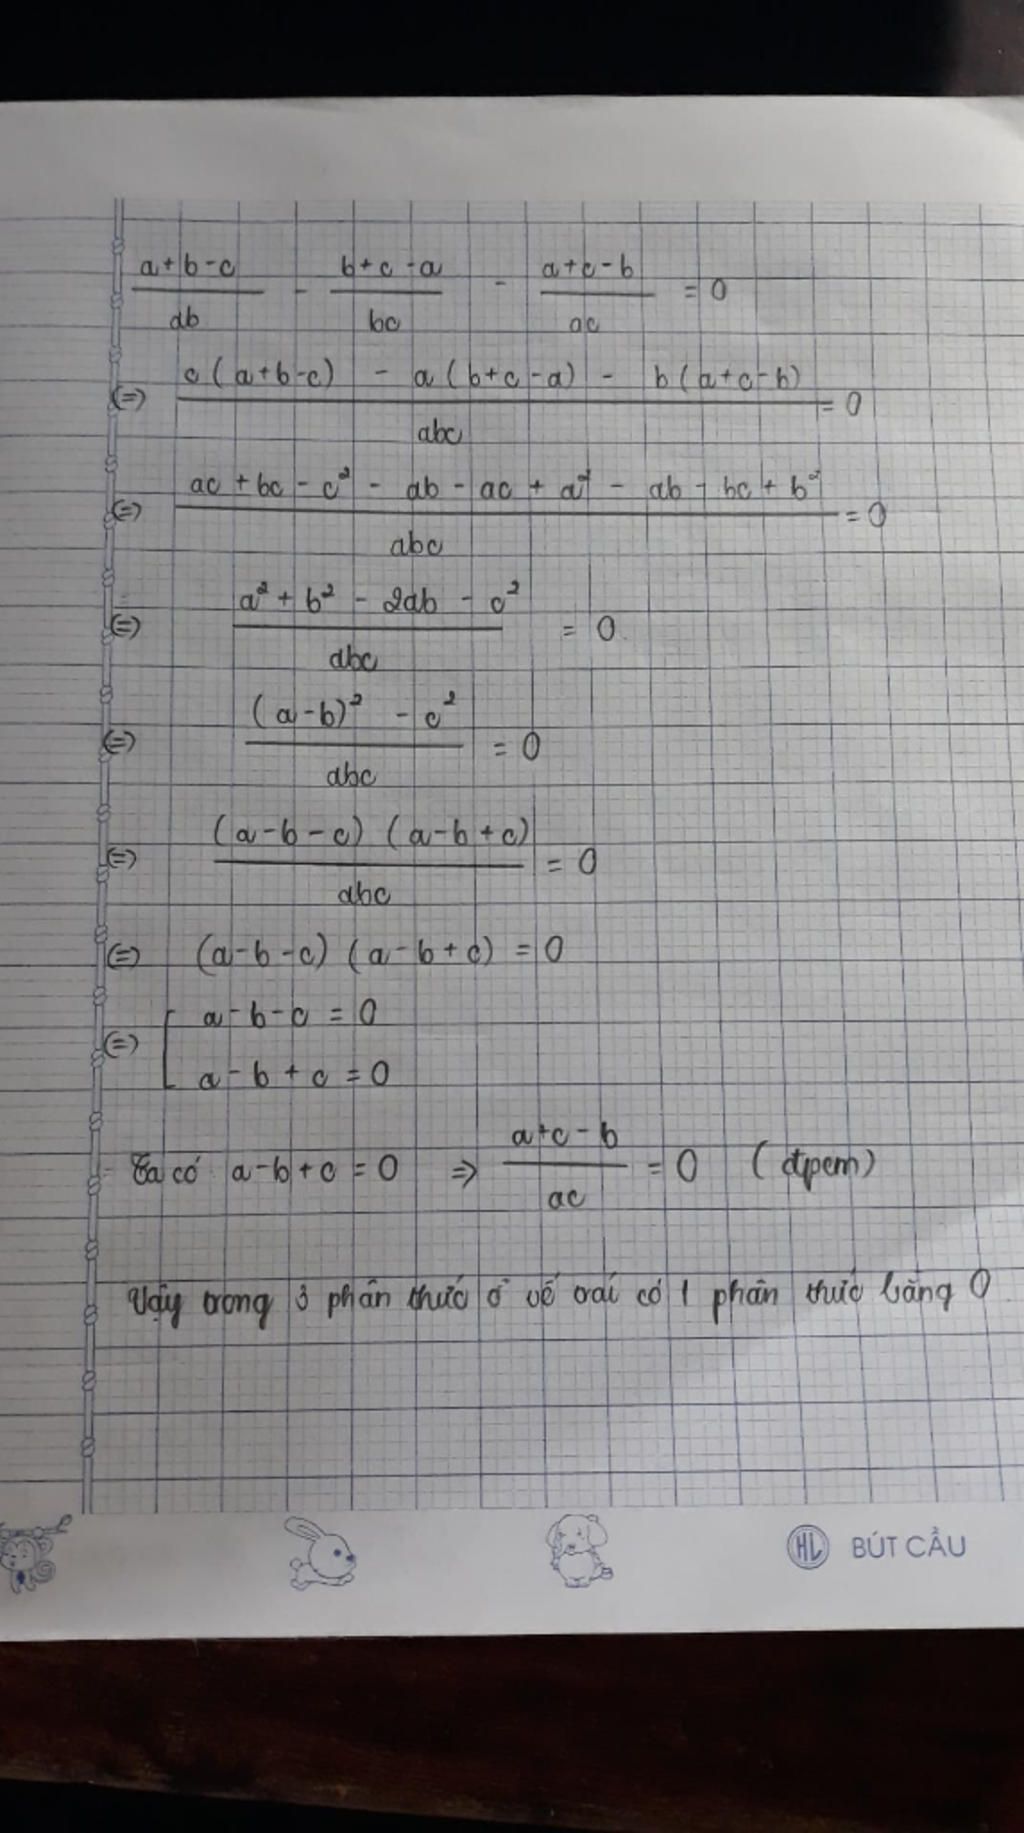 a+b-c/ab - b+c-a/bc - a+c-b/ac = 0
(=) c(a+b-c) - a(b+c-a) - b(a+c-b)/abc = 0
(=) ac + bc - c² - ab - ac + a² - ab - bc + b²/abc = 0
(=) a² + b² - 2ab - c²/abc = 0
(=) (a-b)² - c²/abc = 0
(=) (a-b-c) (a-b+c)/abc = 0
(=) (a-b-c) (a-b+c) = 0
(=) [ a-b-c = 0
a-b+c = 0
Ta có a-b+c = 0 => a+c-b/ac = 0 (đpcm)
Vậy trong 3 phân thức ở vế trái có 1 phân thức bằng 0
HL BÚT CẨU